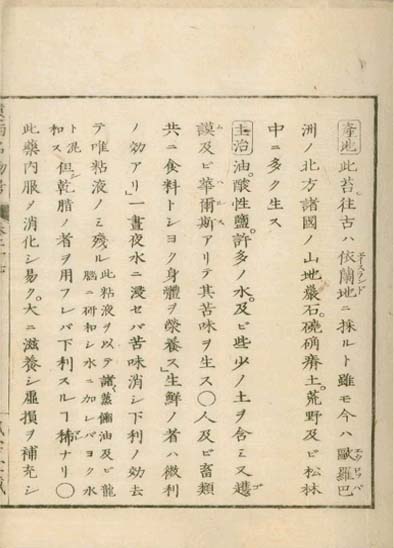 産地 此苔往古ハ依蘭地ニ採ルト雖モ今ハ歐羅巴
洲ノ北方諸國ノ山地巖石磽确瘠土荒野及ヒ松林
中ニ多ク生ス
主治 油酸性鹽許多ノ水及ビ些少ノ土ヲ含ミ又護
謨及ビ華爾斯アリテ其苦味ヲ生ス〇人及ビ畜類
共ニ食料トシヨク身體ヲ榮養ス生鮮ノ者ハ微利
ノ効アリ一晝夜水ニ浸セバ苦味消シ下利ノ効去
テ唯粘液ノミ残ル 此粘液ヲ以テ諸蒸餾油及ビ龍
脳ニ研和シ水ニ加レバヨク水
ト混
和ス 但シ乾腊ノ者ヲ用フレバ下利スルヿ稀ナリ〇
此藥内服メ消化シ易ク大ニ滋養シ虚損ヲ補充シ